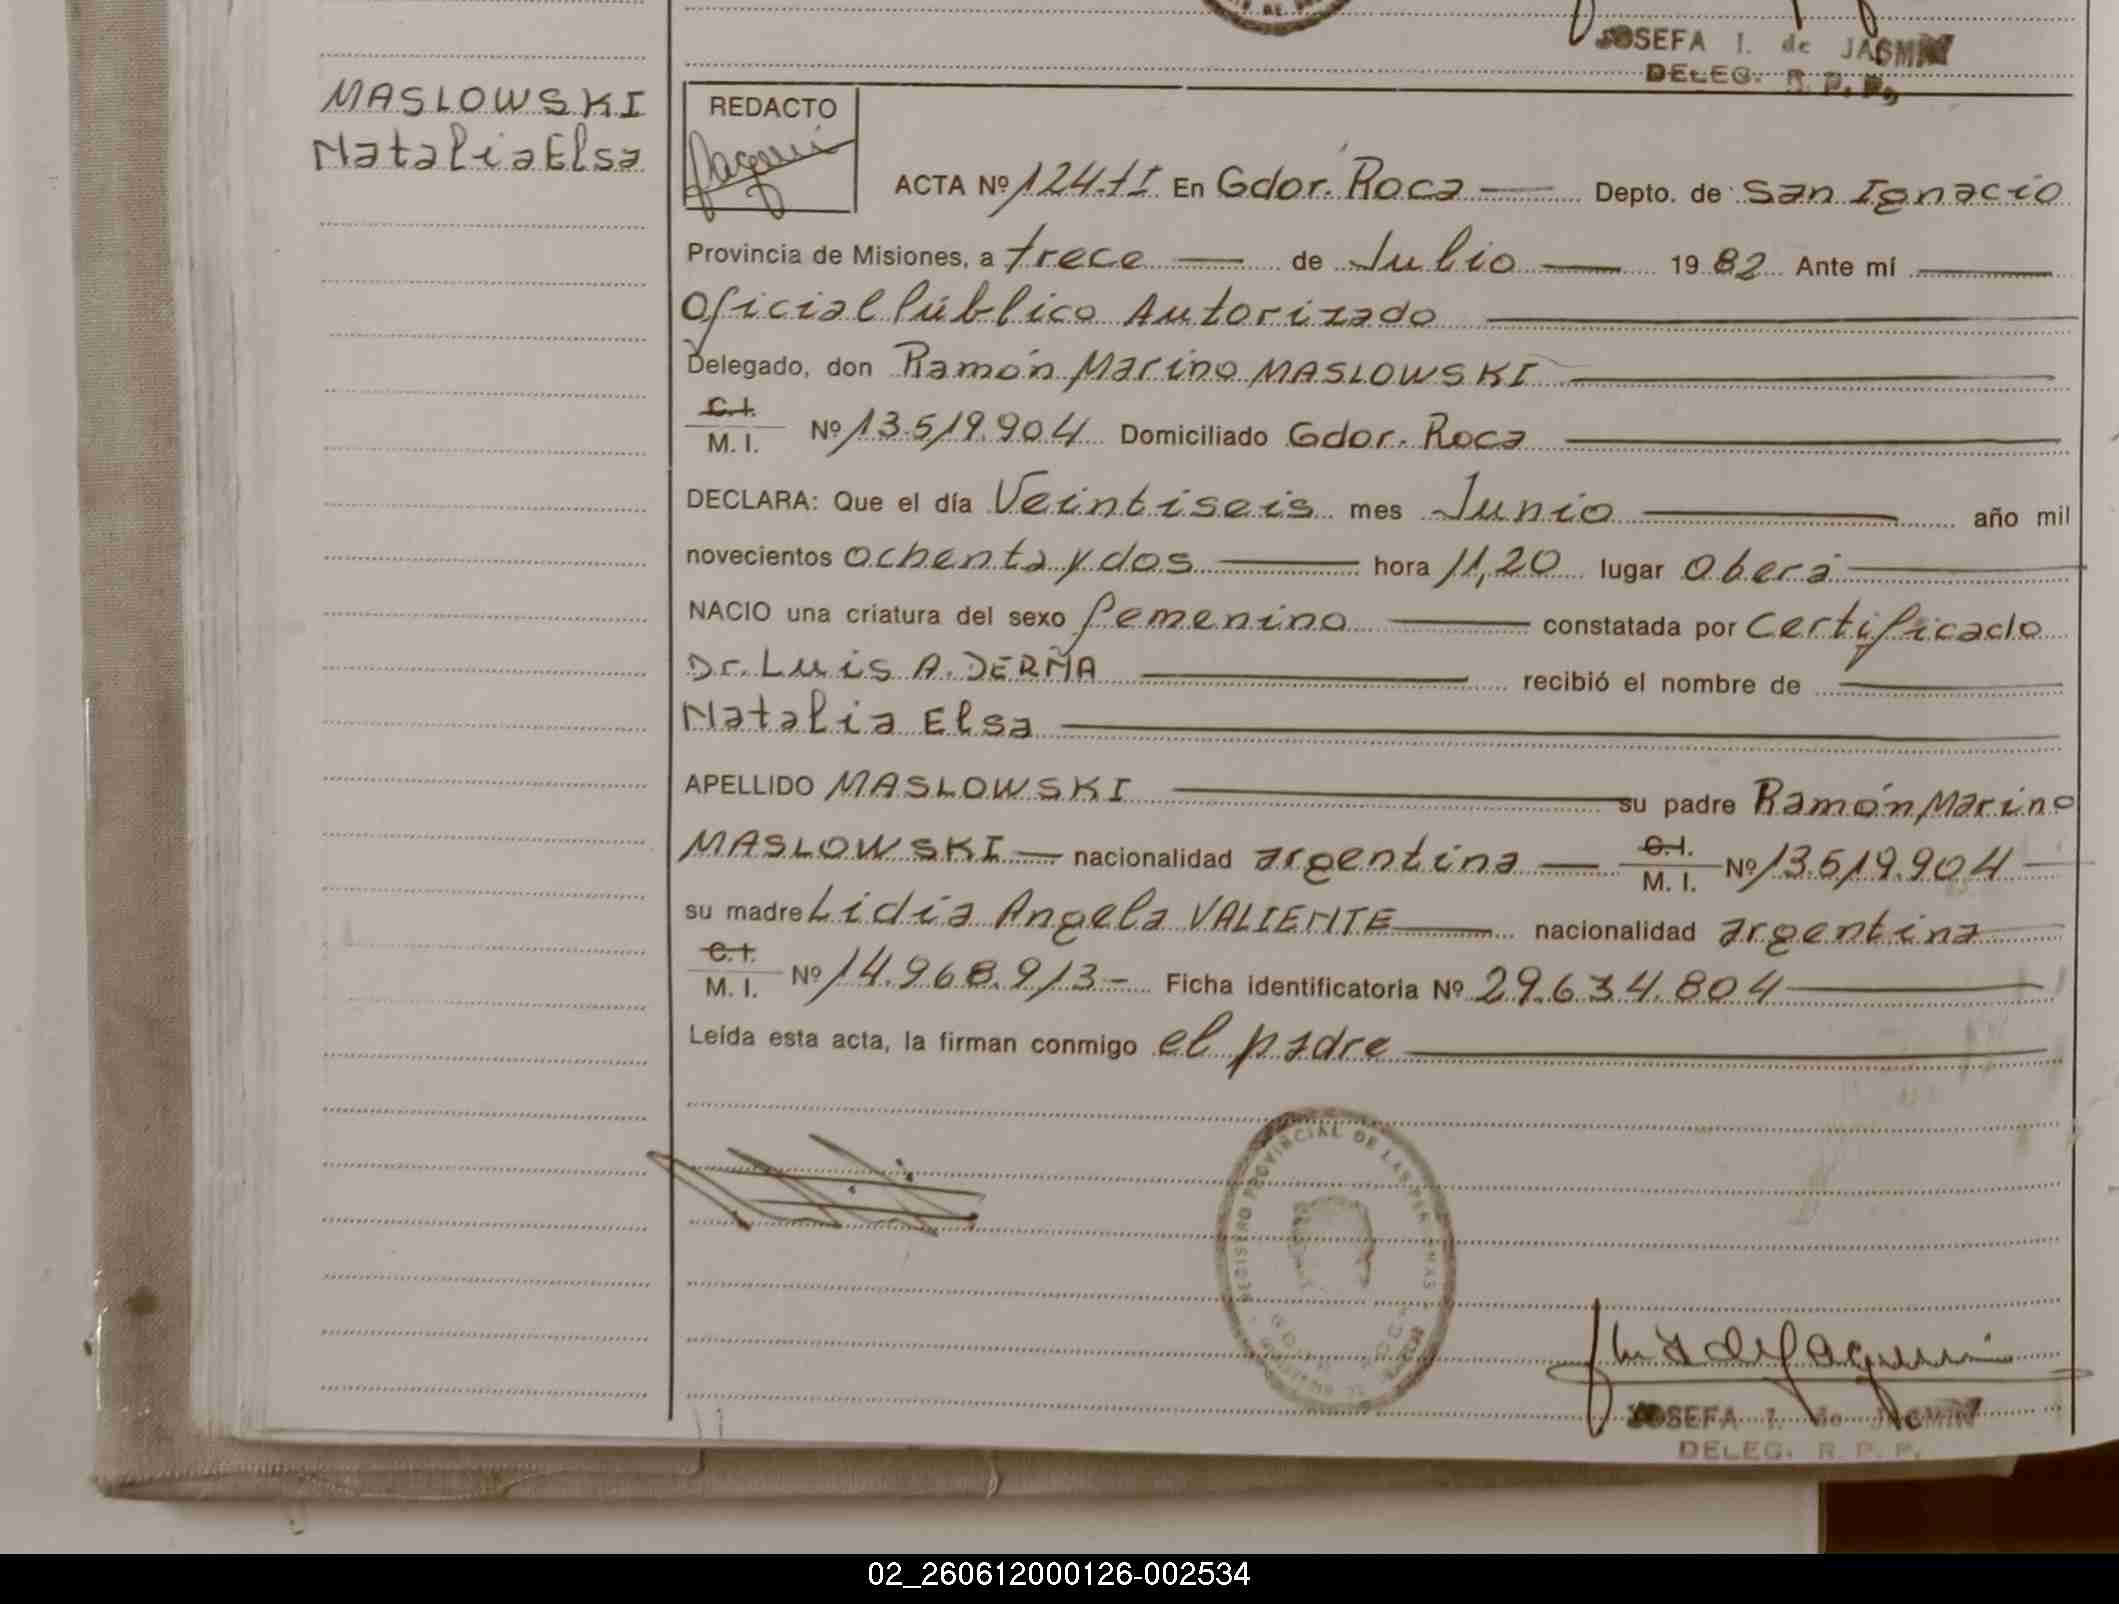 JOSEFA I. de JASMIN
DELEG. R. P. P.
MASLOWSKI
Natalia Elsa
REDACTO
ACTA Nº 124-II En Gdor. Roca Depto. de San Ignacio
Provincia de Misiones, a trece de Julio 1982 Ante mí
Oficial Público Autorizado
Delegado, don Ramón Marino MASLOWSKI
C.I.
M. I. Nº 13.519.904 Domiciliado Gdor. Roca
DECLARA: Que el día Veintiseis mes Junio año mil
novecientos ochenta y dos hora 11,20 lugar Oberá
NACIO una criatura del sexo femenino constatada por Certificado
Dr. Luis A. DERÑA recibió el nombre de
Natalia Elsa
APELLIDO MASLOWSKI su padre Ramón Marino
MASLOWSKI nacionalidad argentina C.I.
M. I. Nº 13.519.904
su madre Lidia Angela VALIENTE nacionalidad argentina
C.I.
M. I. Nº 14.968.913- Ficha identificatoria Nº 29.634.804
Leída esta acta, la firman conmigo el padre
REGISTRO PROVINCIAL DE LAS PERSONAS
JOSEFA I. de JASMIN
DELEG. R. P. P.
02_260612000126-002534